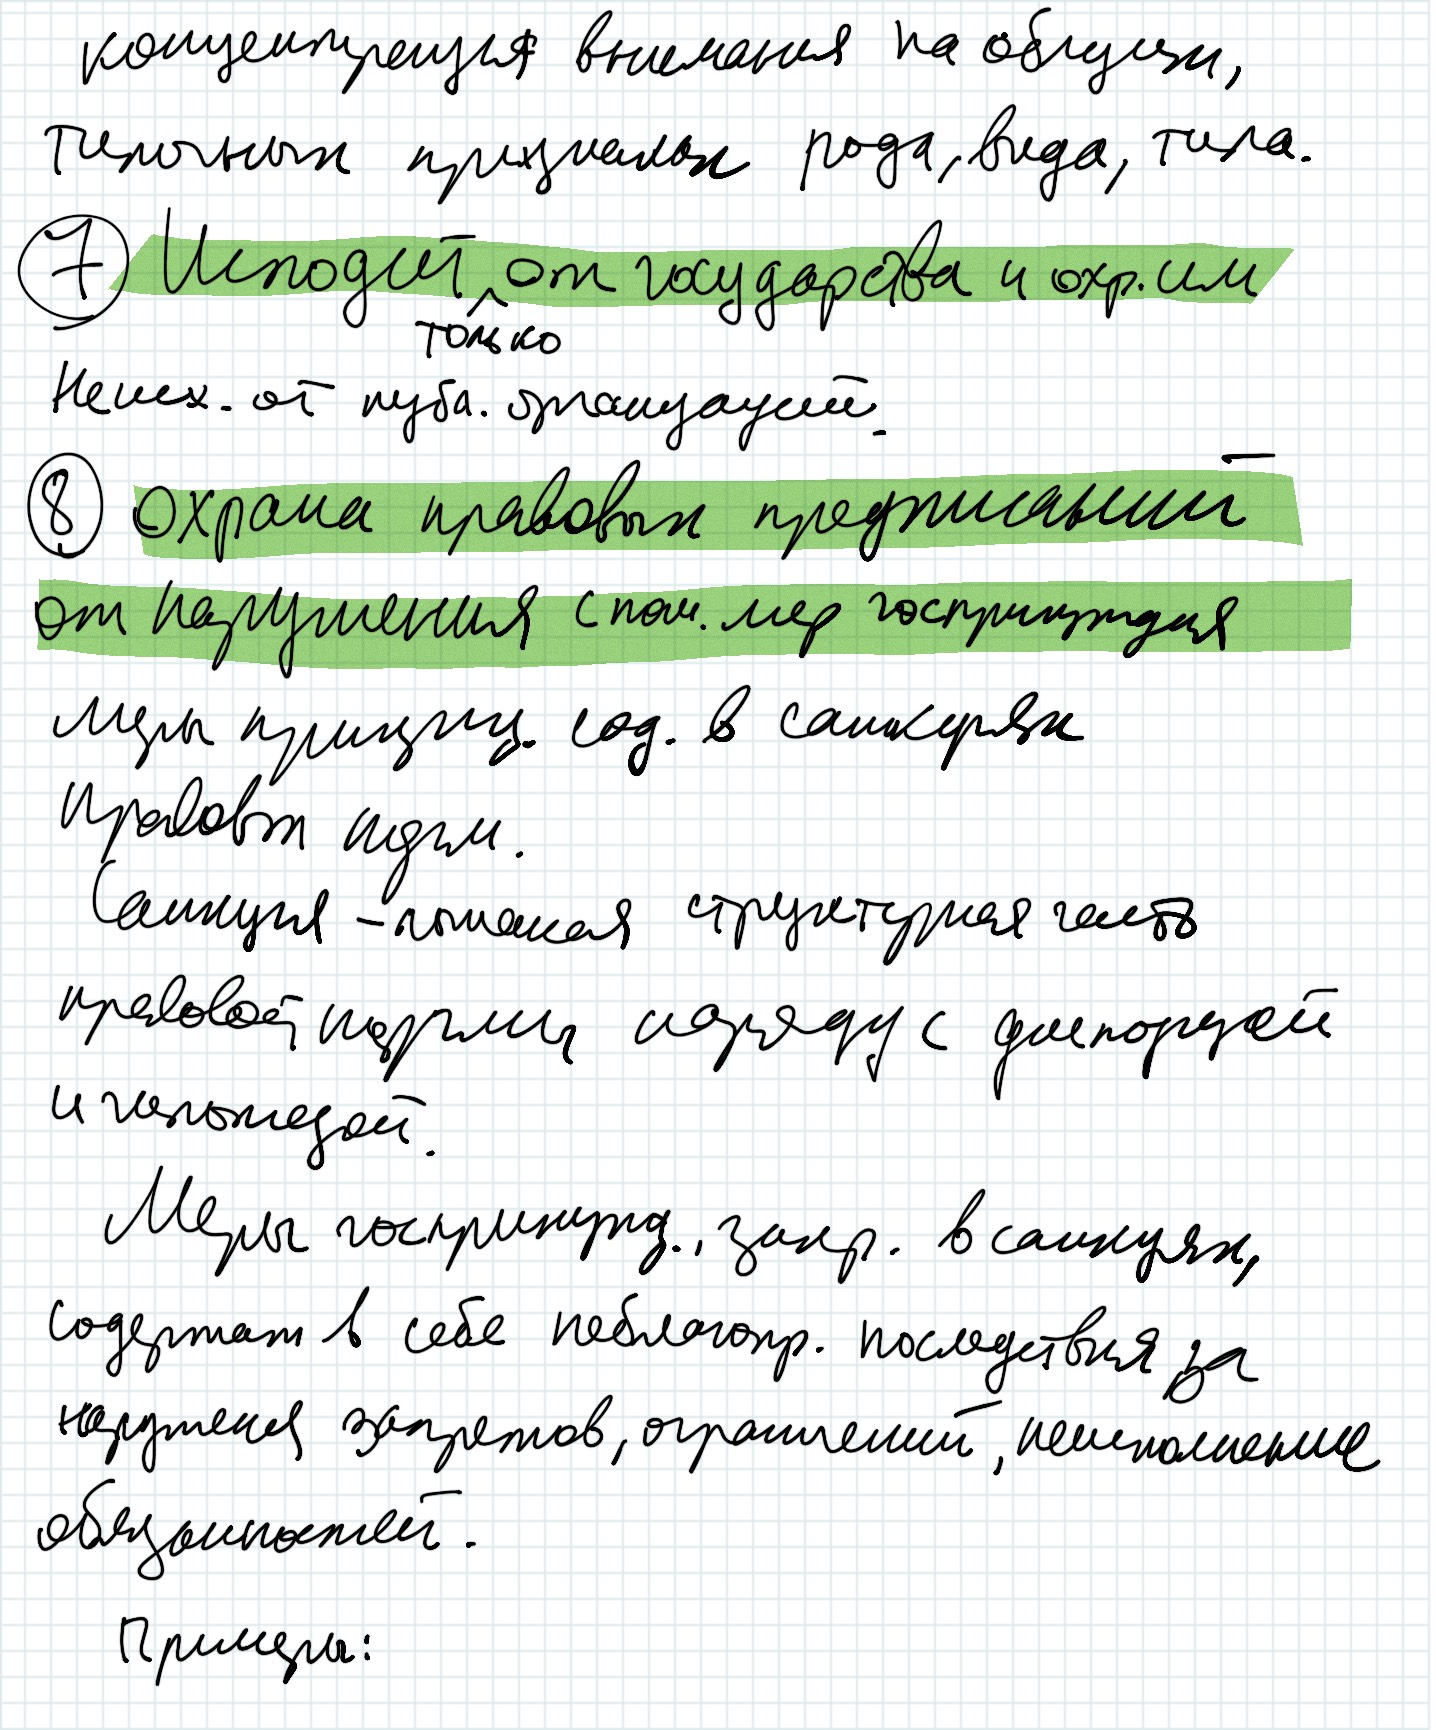 концентрация внимания на общих,
типичных признаках рода, вида, типа.
7 Исходит от государства и охр. им
только
Неисх. от публ. организаций.
8 Охрана правовых предписаний
от нарушения с пом. мер госпринуждения
Меры принужд. сод. в санкциях
правовых норм.
Санкция – такая структурная часть
правовой нормы наряду с диспозицией
и гипотезой.
Меры госпринужд., закр. в санкциях,
содержат в себе неблагопр. последствия за
нарушения запретов, ограничений, неисполнение
обязанностей.
Примеры: